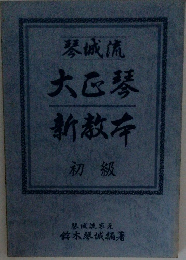 琴城流
大正琴
新教本
初級
琴城流家元
鈴木琴城編著